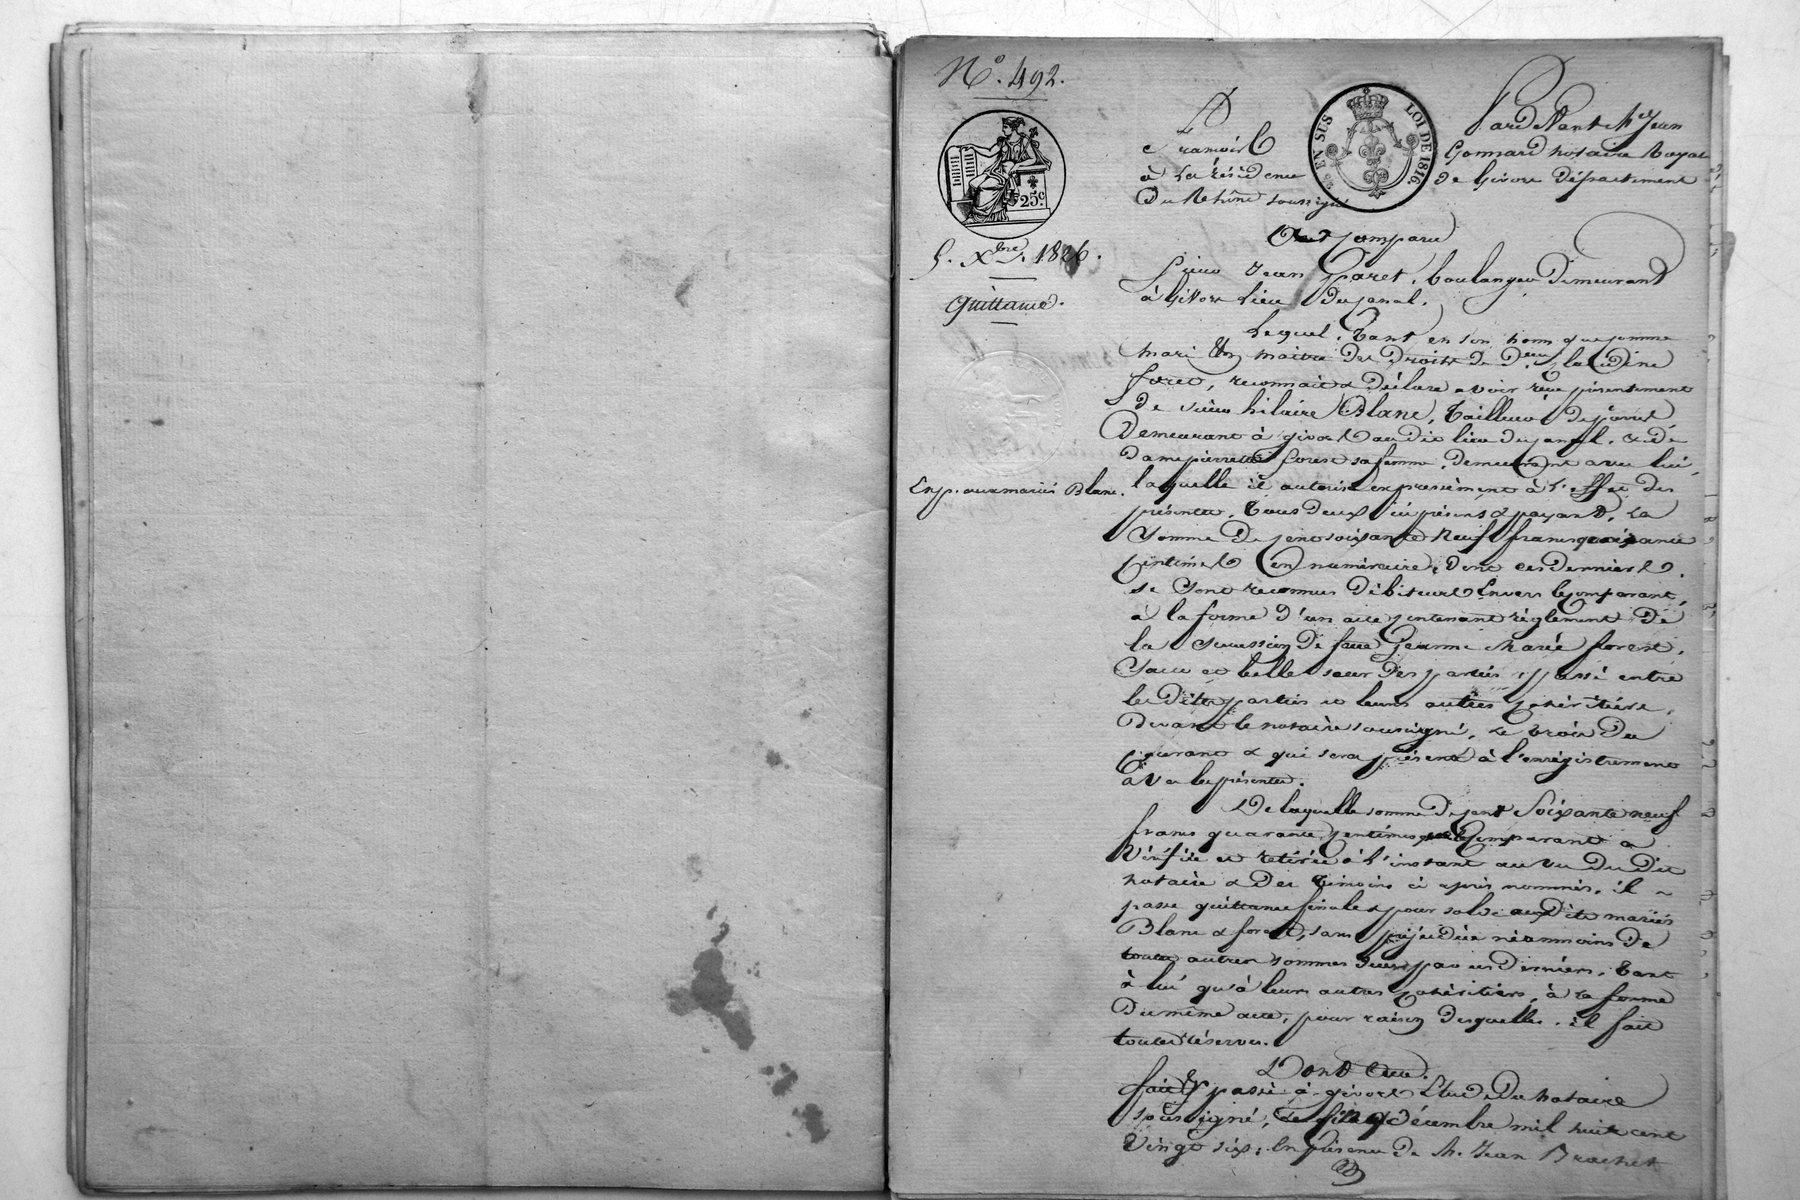 N.° 492.
25 EN SUS
LOI DE 1816.
25c
5. Xbre. 1826.
quittance.
Exp. aux mariés Blanc.
Pardevant Me Jean
François Gonnard notaire Royal
à la résidence de Givors département
Du Rhône soussigné
Est comparu
Sieur Jean Paret, boulanger Demeurant
à Givors lieu du canal.
Lequel, tant en son nom que comme
mari & maître des Droits de De. Claudine
foret, reconnait & Déclare avoir reçu présentement
de sieur hilaire Blanc, tailleur de
Demeurant à givors au dit lieu du canal, & de
dame pierrette forest sa femme, demeurant avec lui,
laquelle il autorise expressément à l'effet des
présentes, tous deux ici présens & payant, la
somme de cent soixante neuf francs quarante
centimes en numéraire, dont ces derniers
se sont reconnus débiteurs envers le comparant,
à la forme d'un acte contenant règlement de
la succession de feue Jeanne Marie forest,
sœur et belle sœur des parties, passé entre
les dites parties et leurs autres cohéritiers,
Devant le notaire soussigné, le trois du
courant & qui sera présenté à l'enregistrement
avec les présentes.
De laquelle somme de cent soixante neuf
francs quarante centimes que le comparant a
vérifiée et retirée à l'instant au vu du dit
notaire & des témoins ci après nommés, il
passe quittance finale & pour solde aux dits mariés
Blanc & forest, sans préjudice néanmoins de
toutes autres sommes dues par ces derniers, tant
à lui qu'à leurs autres cohéritiers, à la forme
Du même acte, pour raison desquelles il fait
toutes réserves.
Dont acte.
fait & passé à givors Etude du notaire
soussigné, le cinq décembre mil huit cent
vingt six, en présence de M. Jean Brachet